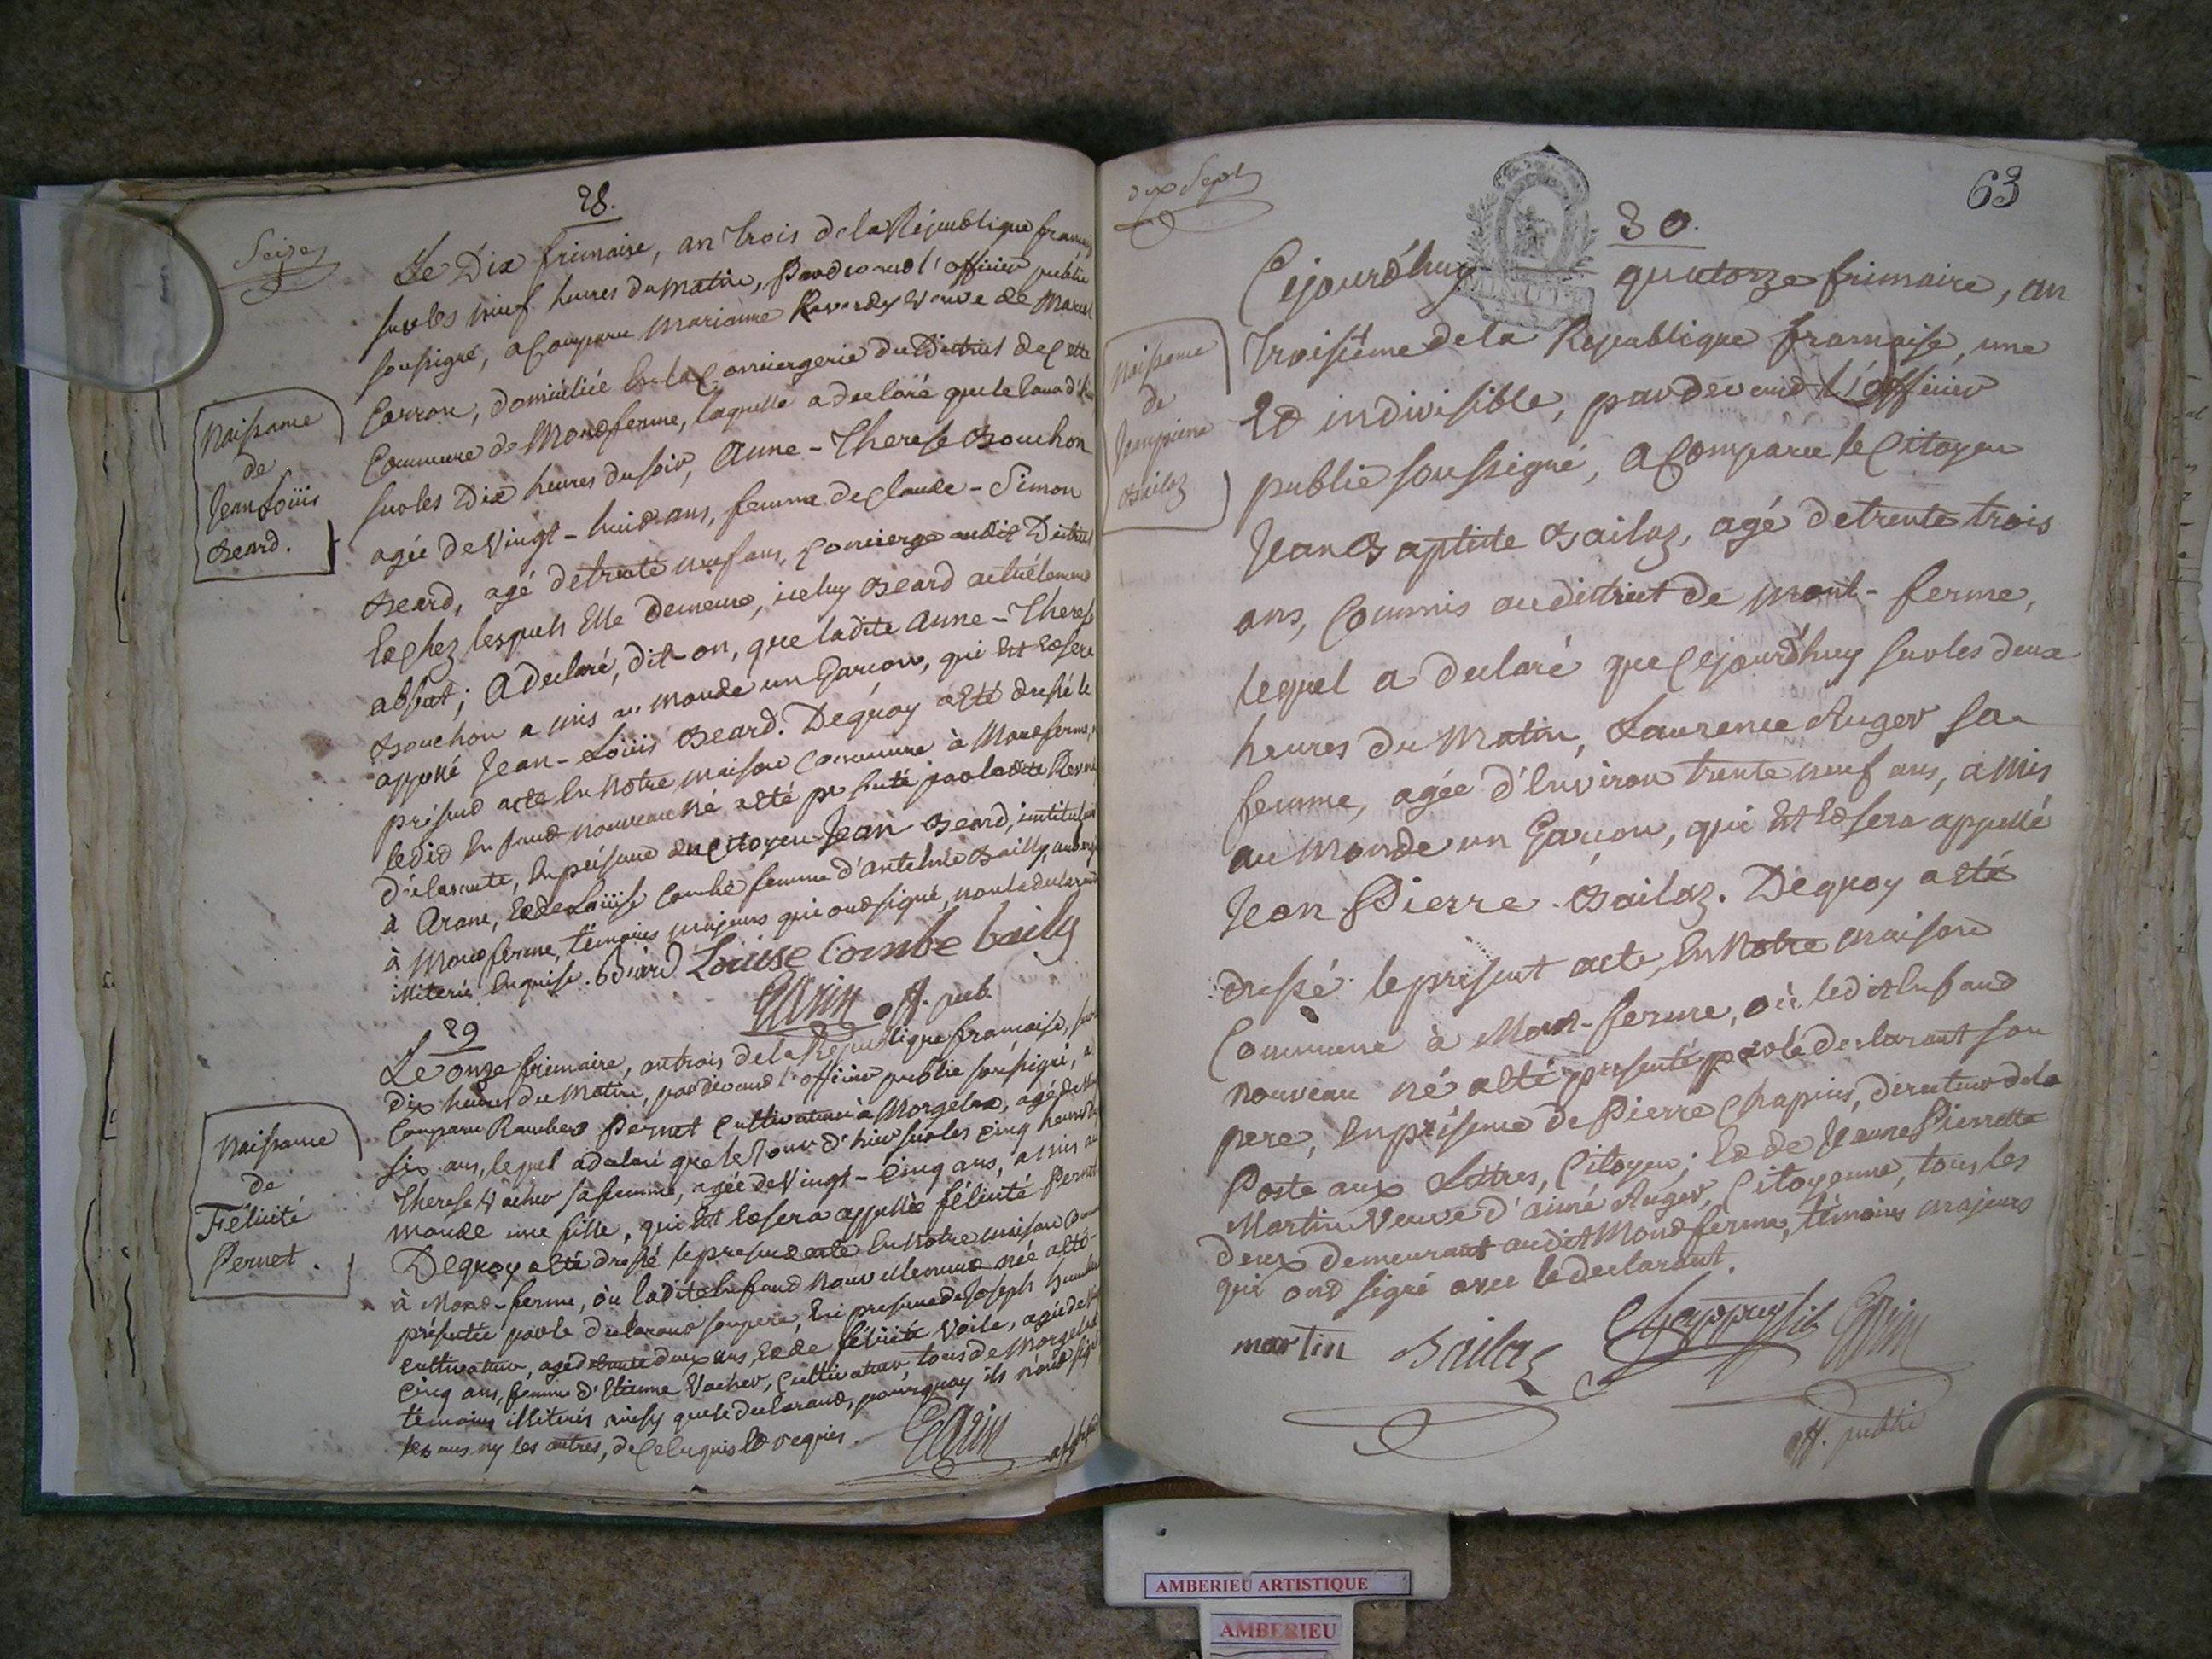 Seize
28.
Le Dix frimaire, an trois de la République francaise
sur les neuf heures du matin, Pardevand l'officier public
soussigné, a Comparu Marianne Reverdy veuve de Marcel
Carron, domiciliée En la Conciergerie du District de Cette
Commune de Mondferme, laquelle a declaré que le Jour d'hier
sur les Dix heures du soir, Anne-Therese Bouchon
agée de Vingt-huid ans, femme de Claude-Simon
Beard, agé de trente neuf ans, Concierge audit District
Ed Chez lesquels Elle demeure, iceluy Beard actuelement
absent; A declaré, dit-on, que ladite Anne-Therese
Bouchon a mis au monde un Garcon, qui Est Ed sera
appellé Jean-Loüis Beard. Dequoy a Eté dressé le
présend acte En Notre maison Commune à Mondferme,
ledid Enfand nouveau né a Eté présenté par ladite
d'éclarante, En présence du Citoyen Jean Beard, instituteur
à Arane, Ed de Loüise Combe femme d'antelme Bailly,
à Mondferme, témoins majeurs qui ond signé, non la declarante
illiterée Enquise. Béard Louise Combe bailly
off. pub.
Naissance
de
Jean Loüis
Beard.
29
Le onze frimaire, an trois de la République francaise, sur
dix heures du Matin, pardevand l'officier public soussigné, a
Comparu Rambert Pernet Cultivateur à Morgelas, agé de
six ans, lequel a declaré que le Jour d'hier sur les cinq heures du
Therese Vacher sa femme, agée de Vingt-Cinq ans, a mis au
monde une fille, qui Est Ed sera appellée félicité Pernet
Dequoy a Eté dressé le présend acte En Notre maison
à Mond-ferme, où ladite Enfand nouvellemend née a Eté
présentée par le declarand son pere, En presence de Joseph
Cultivateur, agé de deux ans, Ed de félicité Voile, agée de
Cinq ans, femme d'Etienne Vacher, Cultivateur, tous de Morgelas
témoins illiterés ainsy que le declarand, pourquoy ils n'ond signé
les uns ny les autres, de Ce Enquis Ed requis.
Naissance
de
Félicité
Pernet.
dix Sept
63
30.
Cejourd'huy quatorze frimaire, an
Troisiéme de la République francaise, une
Ed indivisible, pardevand L'officier
public soussigné, a Comparu le Citoyen
Jean Baptiste Bailaz, agé de trente trois
ans, Commis au district de mont-ferme,
lequel a declaré que Cejourd'huy sur les deux
heures du Matin, Laurence Auger sa
femme, agée d'Environ trente neuf ans, a mis
au monde un Garcon, qui Est Ed sera appellé
Jean Pierre Bailaz. Dequoy a Eté
dressé le présent acte, En Notre maison
Commune à Mond-ferme, où ledit Enfand
nouveau né a Eté présenté par le declarant son
pere, En présence de Pierre Chapuis, directeur de la
Poste aux Lettres, Citoyen; Ed de Jeanne Pierrette
Martin Veuve d'aimé Auger, Citoyenne, tous les
deux demeurant audit Mondferme, témoins majeurs
qui ond signé avec le declarant.
martin Bailaz Chappuy fils
off. public
Naissance
de
Jean pierre
Bailaz
AMBERIEU ARTISTIQUE
AMBERIEU